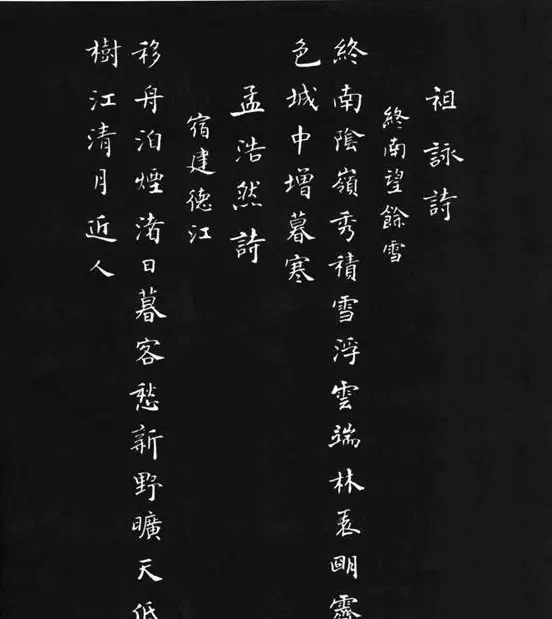 祖詠詩
終南望餘雪
終南陰嶺秀積雪浮雲端林表明霽
色城中增暮寒
孟浩然詩
宿建德江
移舟泊煙渚日暮客愁新野曠天低
樹江清月近人